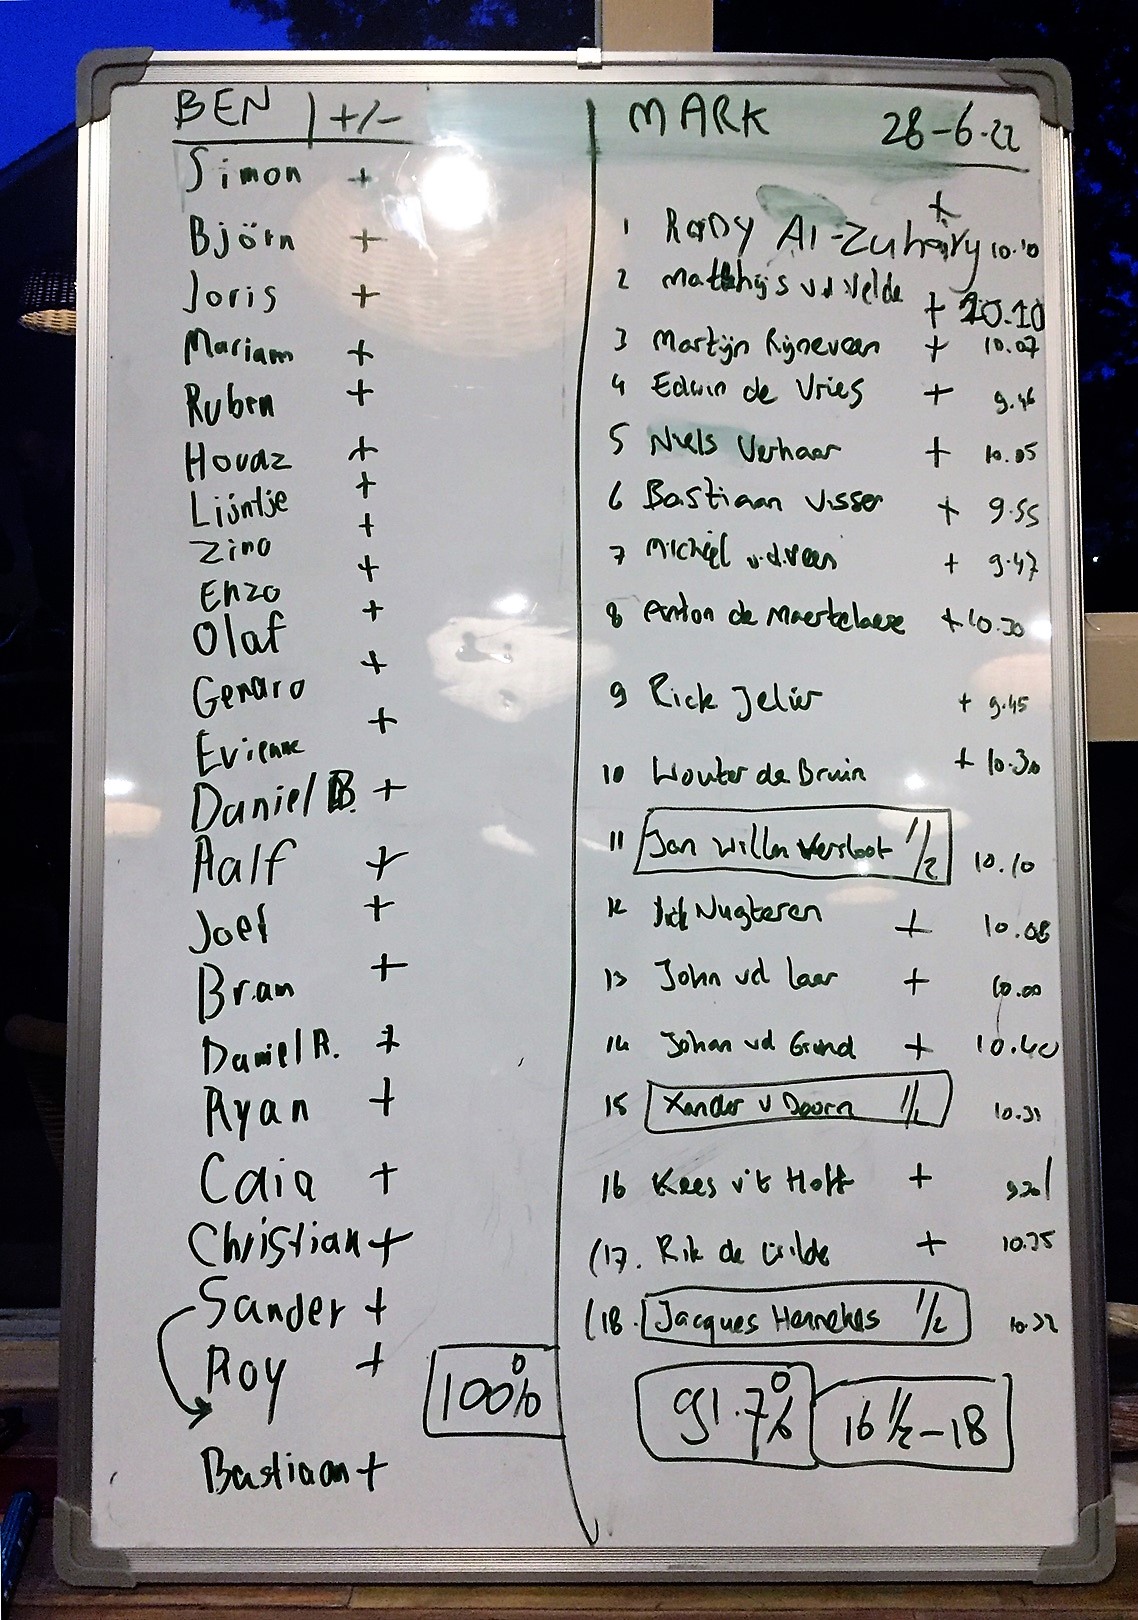 BEN | +/-
Simon +
Björn +
Joris +
Mariam +
Ruben +
Hovaz +
Lijntje +
Zino +
Enzo +
Olaf +
Genaro +
Evienne +
Daniel B. +
Aalf +
Joef +
Bram +
Daniel R. +
Ryan +
Caia +
Christian +
Sander +
Roy +
Bastiaan +
100%
MARK 28-6-22
1 Rany Al-Zuhairy + 10.10
2 Matthijs vd Velde + 10.10
3 Martijn Rijneveen + 10.07
4 Edwin de Vries + 9.46
5 Niels Verhaar + 10.05
6 Bastiaan Visser + 9.55
7 Michiel v.d. Veen + 9.47
8 Anton de Maertelaere + 10.30
9 Rick Jelier + 9.45
10 Wouter de Bruin + 10.30
11 Jan Willem Versloot 1/2 10.10
12 Nugteren + 10.08
13 John vd Laar + 10.00
14 Johan vd Grond + 10.40
15 Xander v Doorn 1/2 10.31
16 Kees v't Hoff +
(17. Rik de Wilde + 10.35
(18. Jacques Hennekes 1/2 10.32
91.7% 16 1/2-18